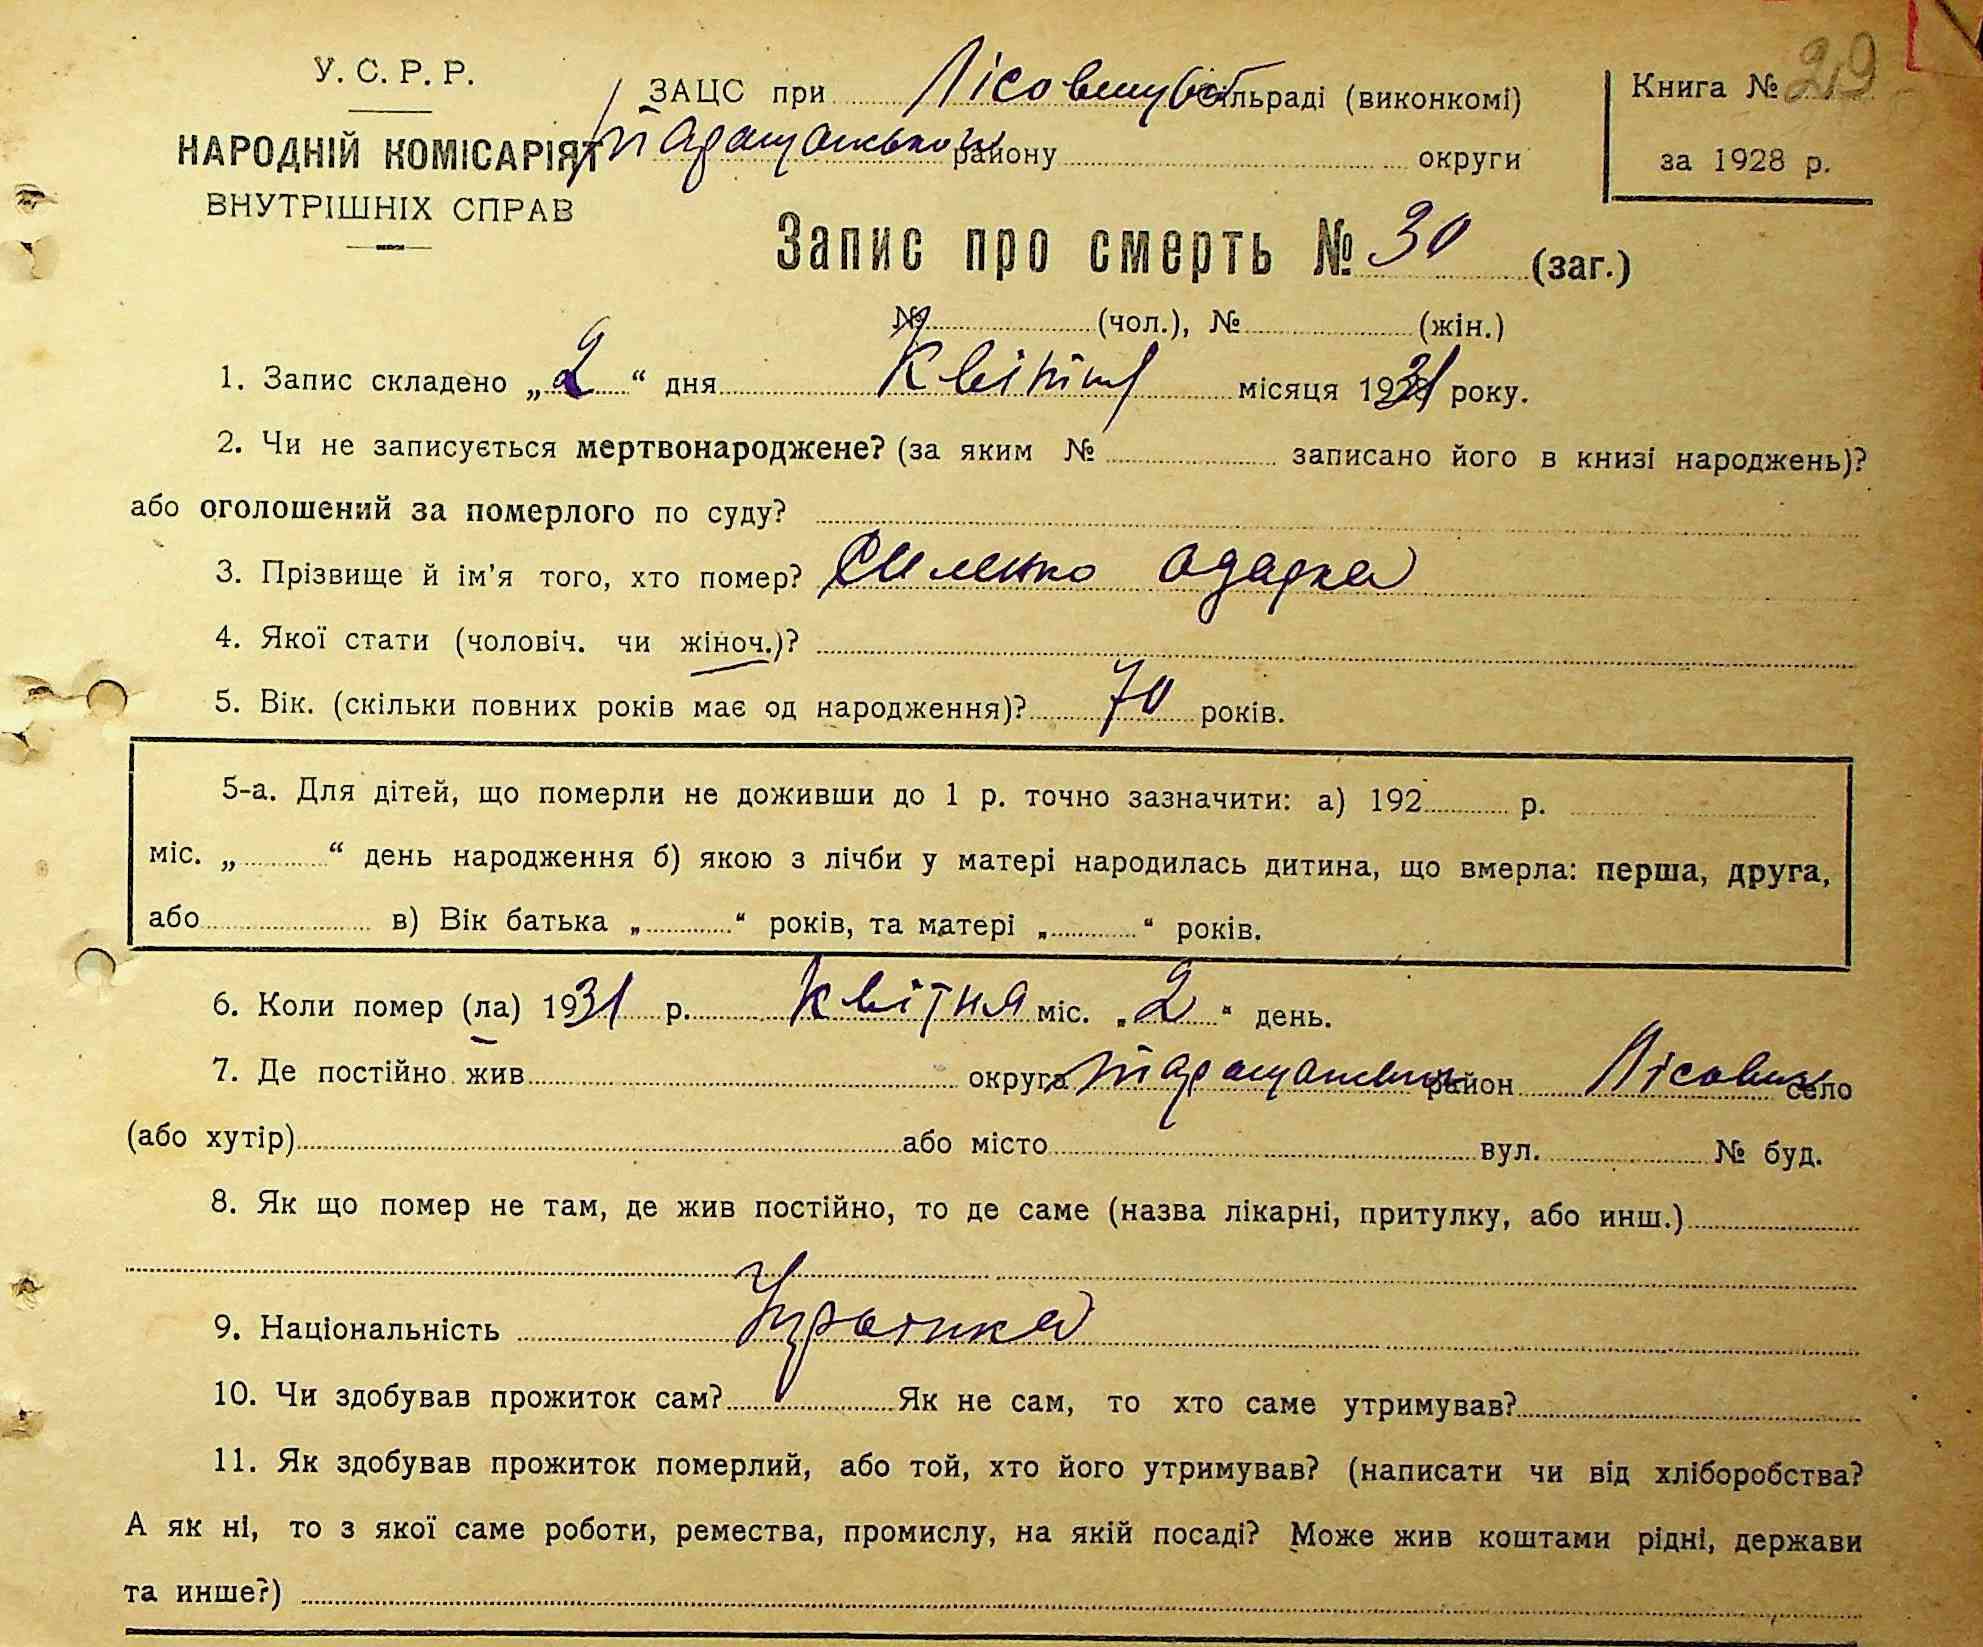 У. С. Р. Р.
НАРОДНІЙ КОМІСАРІЯТ
ВНУТРІШНІХ СПРАВ
ЗАЦС при сільраді (виконкомі)
Таращанського району округи
Книга № 29
за 1928 р.
Запис про смерть № 30 (заг.)
№ (чол.), № (жін.)
1. Запис складено „2“ дня Квітня місяця 1931 року.
2. Чи не записується мертвонароджене? (за яким № записано його в книзі народжень)?
або оголошений за померлого по суду?
3. Прізвище й ім’я того, хто помер? Сименко Одарка
4. Якої стати (чоловіч. чи жіноч.)?
5. Вік. (скільки повних років має од народження)? 70 років.
5-а. Для дітей, що померли не доживши до 1 р. точно зазначити: а) 192 р.
міс. „ “ день народження б) якою з лічби у матері народилась дитина, що вмерла: перша, друга,
або в) Вік батька „ “ років, та матері „ “ років.
6. Коли помер (ла) 1931 р. квітня міс. „2“ день.
7. Де постійно жив округа район село
(або хутір) або місто вул. № буд.
8. Як що помер не там, де жив постійно, то де саме (назва лікарні, притулку, або инш.)
9. Національність
10. Чи здобував прожиток сам? Як не сам, то хто саме утримував?
11. Як здобував прожиток померлий, або той, хто його утримував? (написати чи від хліборобства?
А як ні, то з якої саме роботи, ремества, промислу, на якій посаді? Може жив коштами рідні, держави
та инше?)